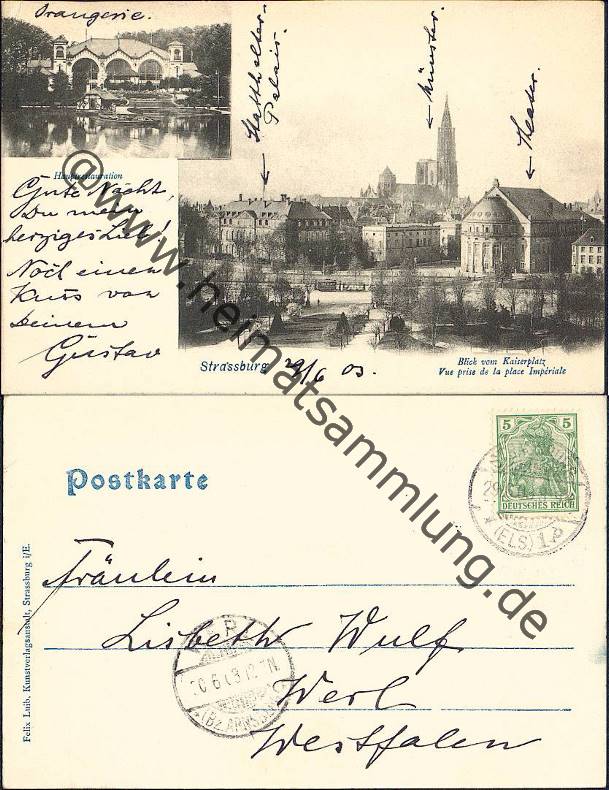 Orangerie.
Statthalter-
Palais.
Münster.
Theater.
Hauptrestauration
Gute Nacht,
Du mein
herziges Lieb!
Noch einen
Kuss von
Deinem
Gustav
Strassburg 29/6 03.
Blick vom Kaiserplatz
Vue prise de la place Impériale
@www.heimatsammlung.de
Postkarte
5 5
DEUTSCHES REICH
(ELS) 1
Fräulein
Lisbeth Wulf
Werl
Westfalen
Felix Luib, Kunstverlagsanstalt, Strassburg i/E.